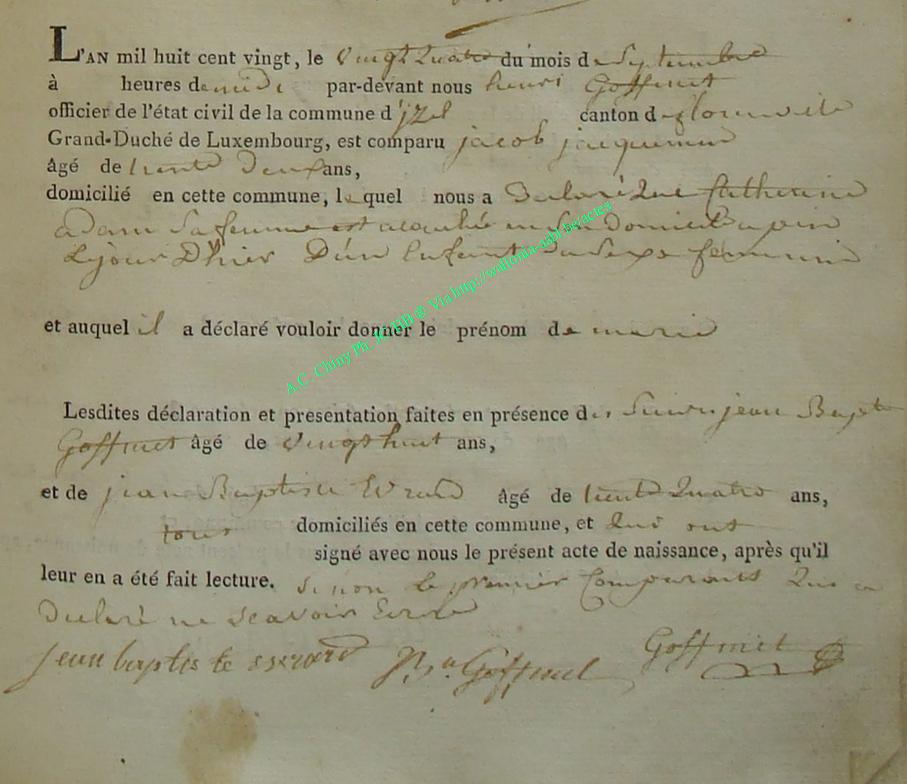 L'AN mil huit cent vingt, le vingt quatre du mois de septembre
à heures de midi par-devant nous henri Goffinet
officier de l'état civil de la commune d'jzel canton de florenville
Grand-Duché de Luxembourg, est comparu jacob jacquemin
âgé de trente deux ans,
domicilié en cette commune, lequel nous a declaré que Catherine
adam sa femme est acouchée en son domicil a
Le jour D'hier D'un Enfant du sexe feminin
et auquel il a déclaré vouloir donner le prénom de marie
Lesdites déclaration et presentation faites en présence des jean Bapte
Goffinet âgé de vingt huit ans,
et de jean Baptiste Evrard âgé de trente quatre ans,
tous domiciliés en cette commune, et qui ont
signé avec nous le présent acte de naissance, après qu'il
leur en a été fait lecture. sinon le premier Comparant qui a
Declaré ne scavoir Ecrire
jean baptiste evrard J. B. Goffinet Goffinet
A.C. Chiny Ph. JCHB @ Via http://wallonia-asbl.be/actes